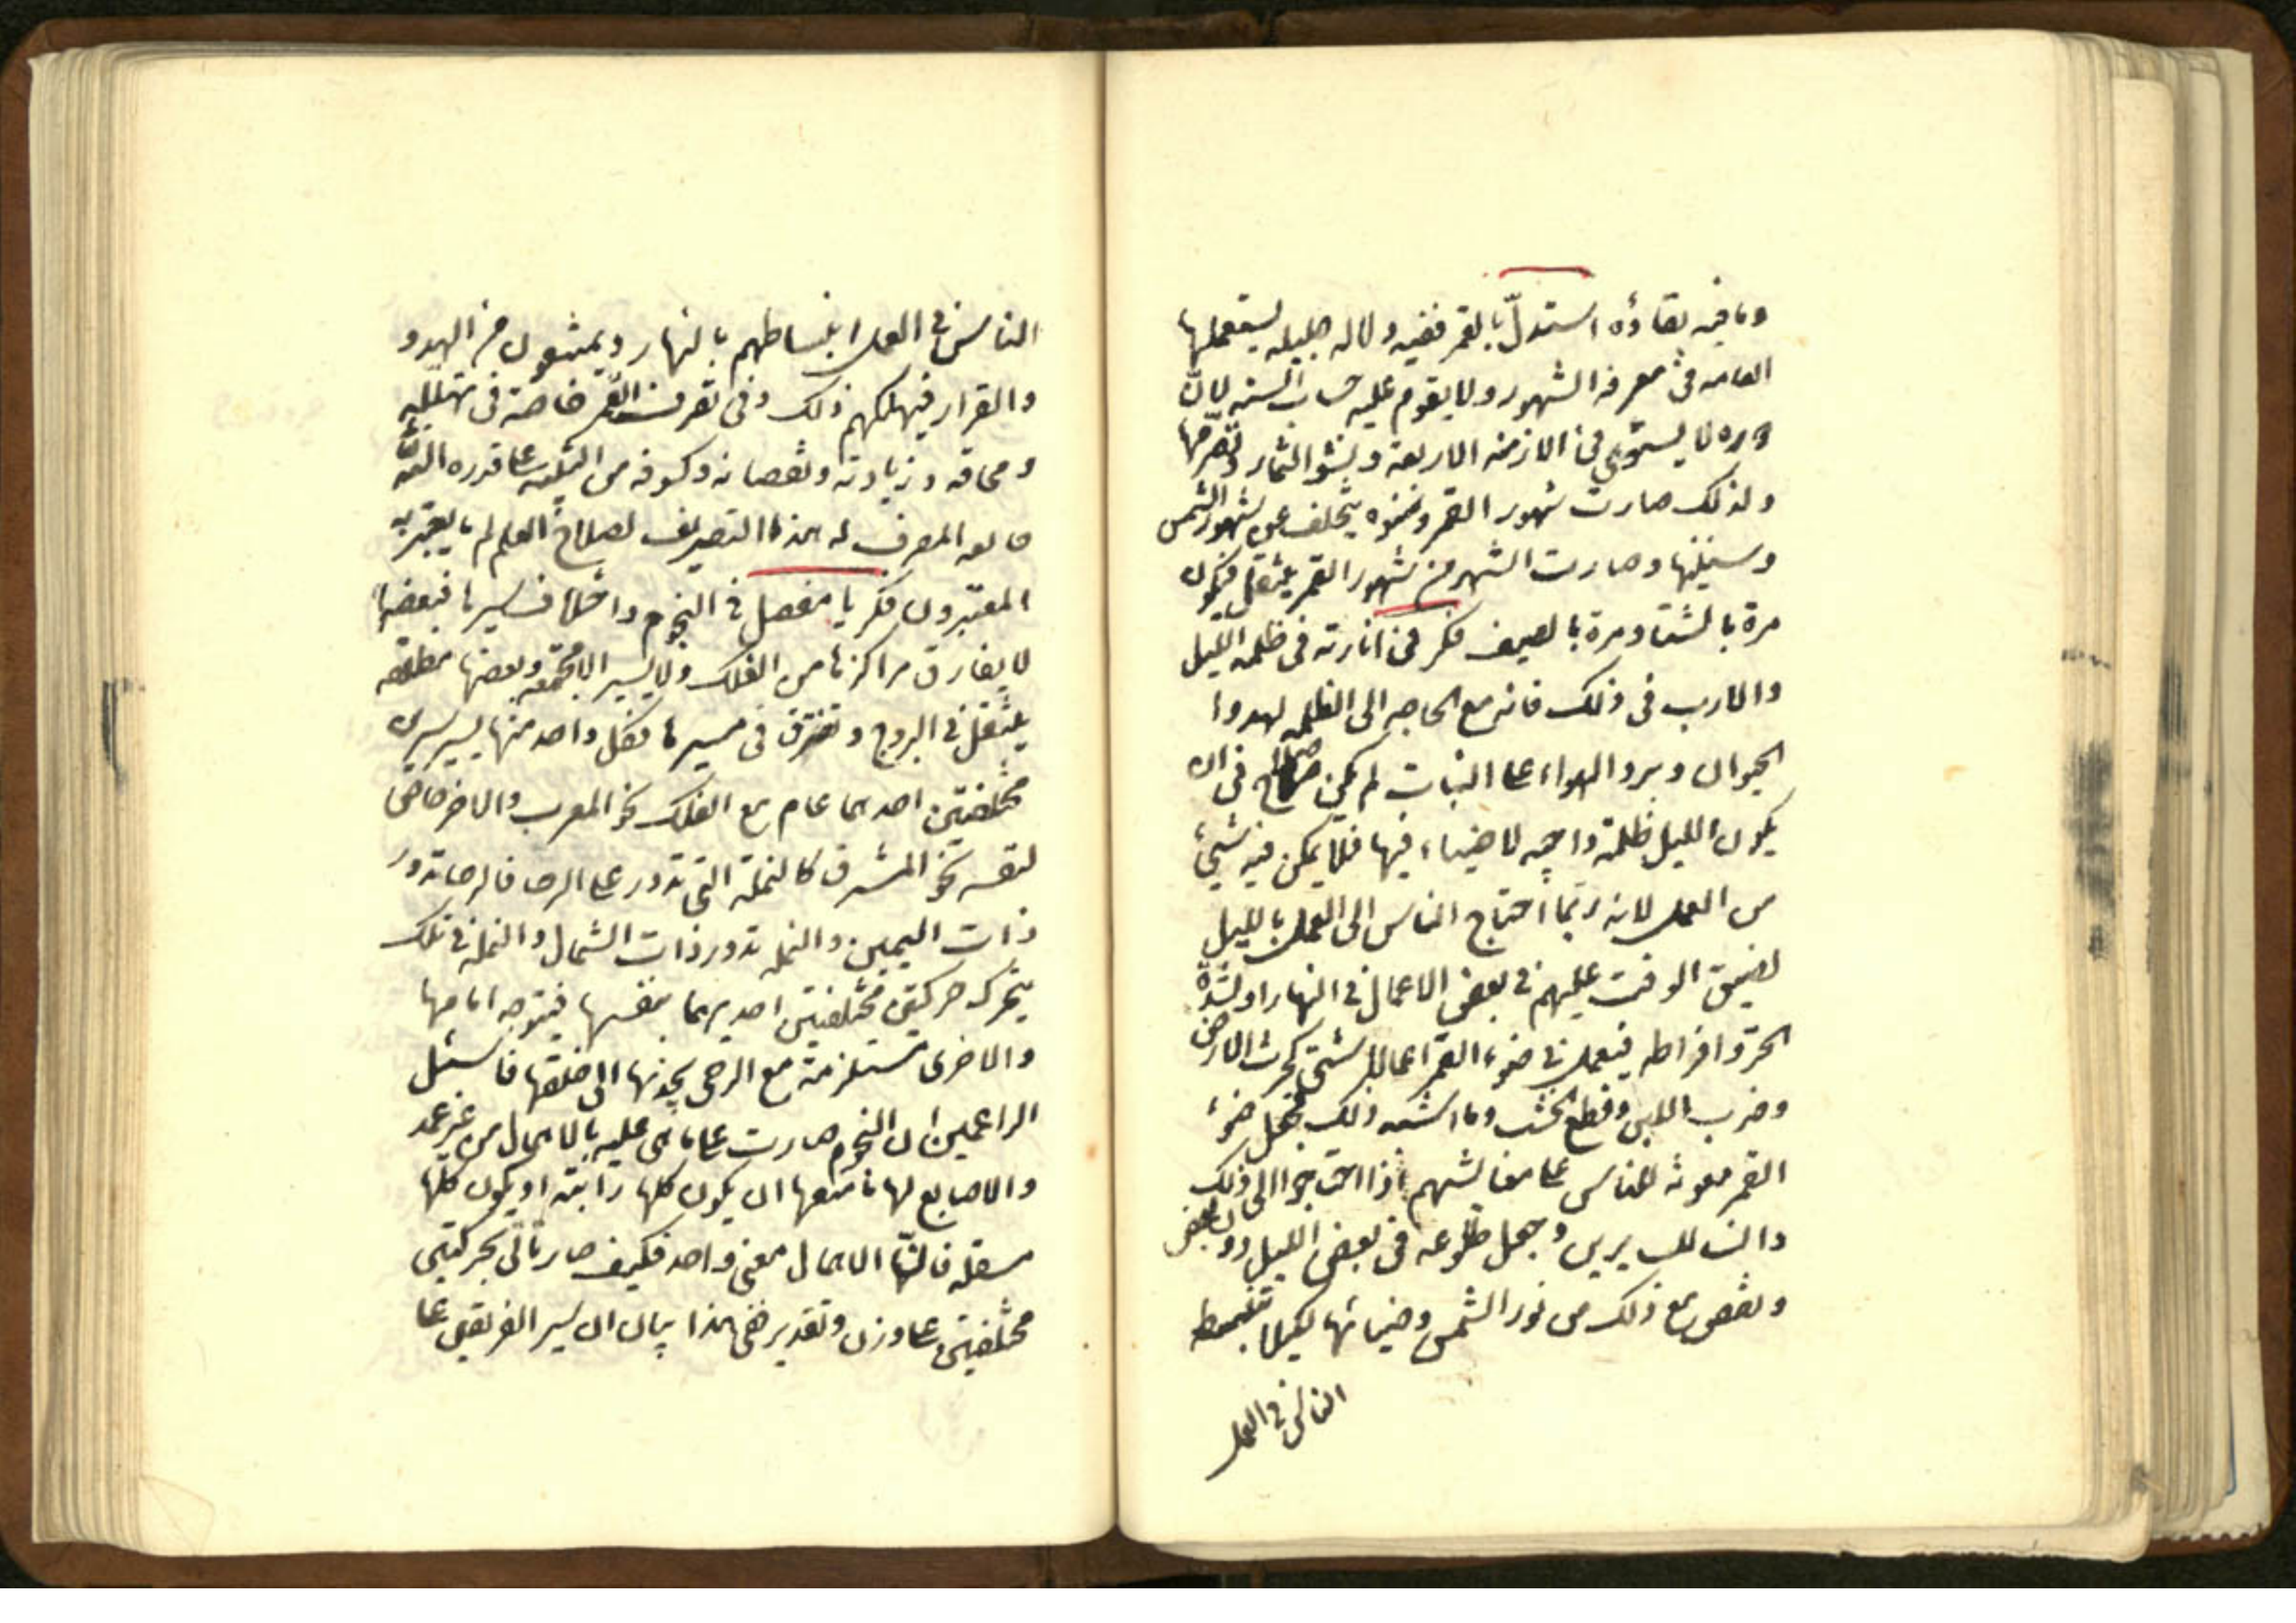 وما فيه بقاؤه استدلّ بالقمر ففيه دلاله جليله يستعملها
العامه فى معرفه الشهور ولا يقوم عليه حساب السنه لانّ
دوره لا يستوفى الازمنه الاربعه ونشو الثمار وتصرّمها
ولذلك صارت شهور القمر وسنوه يتخلف عن شهور الشمس
وسنيها وصارت الشهر من شهور القمر ينتقل فيكون
مرة بالشتا ومرة بالصيف فكر فى انارته فى ظلمه الليل
والمارب فى ذلك فانه مع الحاجه الى الظلمه لهدوا
الحيوان وبرد الهواء على النبات لم يكن صلاح فى ان
يكون الليل ظلمة داجيه لا ضياء فيها فلا يمكن فيه شيئ
من العمل لانه ربّما احتاج الناس الى العمل بالليل
لضيق الوقت عليهم فى بعض الاعمال فى النهار او لشدّه
الحرّ وافراطه فيعمل فى ضوء القمر اعمال شتى كحرث الارض
وضرب اللبن وقطع الخشب وما اشبه ذلك فجعل ضوء
القمر معونة للناس على معائشهم اذا احتاجوا الى ذلك
وانسا للسايرين وجعل طلوعه فى بعض الليل دون بعض
ونقص مع ذلك من نور الشمس وضيائها لكيلا تنبسط
الناس فى العمل
الناس فى العمل انبساطهم بالنهار ويمتنعون من الهدو
والقرار فيهلكهم ذلك وفى تصرف القمر خاصة فى تهلّله
ومحاقه وزيادته ونقصانه وكسوفه من التنبيه على قدره اللّه
خالقه المصرف له هذا التصريف لصلاح العلم لم ما يعتبر به
المعتبرون فكر يا مفضل فى النجوم واختلاف سيرها فبعضها
لا يفارق مراكزها من الفلك ولا يسير الا مجتمعه وبعضها مطلقه
ينتقل فى البروج وتفترق فى مسيرها فكل واحد منها يسير سيرين
مختلفين احدهما عام مع الفلك نحو المغرب والاخر خاص
لنفسه نحو المشرق كالنملة التى تدور على الرحا فالرحا تدور
ذات اليمين والنمله تدور ذات الشمال والنمله فى تلك
يتحرك حركتين مختلفتين احديهما بنفسها فيتوجه امامها
والاخرى مستلزمة مع الرحى يجذبها الى خلفها فاسئل
الزاعمين ان النجوم صارت على ما هى عليه بالاهمال من غير عمد
والاصابع لها ما منعها ان يكون كلها راتبة او يكون كلها
منتقله فانّ الاهمال معنى واحد فكيف صار تأتى بحركتين
مختلفتين على وزن وتقدير ففى هذا بيان ان سير الفريقين على